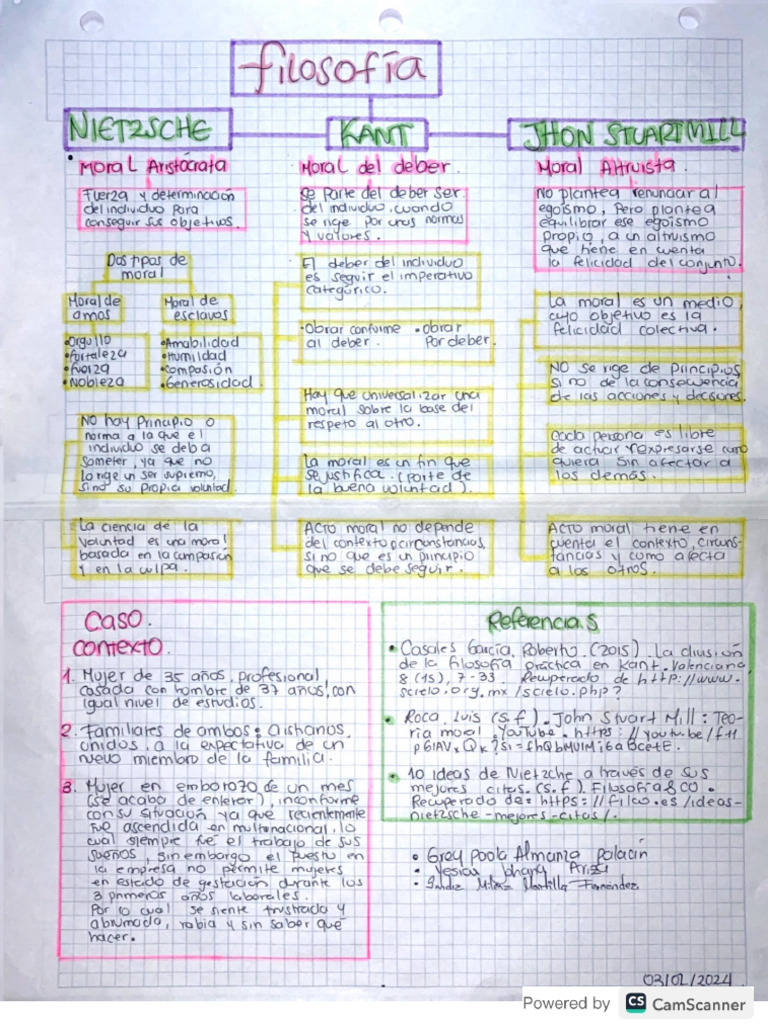 filosofía
NIETZSCHE
KANT
JHON STUART MILL
Moral Aristócrata
Fuerza y determinación
del individuo para
conseguir sus objetivos.
Dos tipos de
moral
Moral de
amos
Moral de
esclavos
•Orgullo
•Fortaleza
•Fuerza
•Nobleza
•Amabilidad
•Humildad
•Compasión
•Generosidad.
No hay Principio o
norma a la que el
individuo se deba
someter, ya que no
lo rige un ser supremo,
sino su propia voluntad.
La ciencia de la
voluntad es una moral
basada en la compasión
y en la culpa.
Moral del deber.
Se parte del deber ser
del individuo, cuando
se rige por unas normas
y valores.
El deber del individuo
es seguir el imperativo
categórico.
•Obrar conforme •obrar
al deber. Por deber.
Hay que universalizar una
moral sobre la base del
respeto al otro.
La moral es un fin que
se justifica. (parte de
la buena voluntad).
Acto moral no depende
del contexto o circunstancias,
si no que es un principio
que se debe seguir.
Moral Altruista.
No plantea renunciar al
egoísmo, Pero plantea
equilibrar ese egoísmo
propio, a un altruismo
que tiene en cuenta
la felicidad del conjunto.
La moral es un medio,
cuyo objetivo es la
felicidad colectiva.
No se rige de Principios,
si no de la consecuencia
de las acciones y decisiones.
Cada persona es libre
de actuar y expresarse como
quiera sin afectar a
los demás.
Acto moral tiene en
cuenta el contexto, circuns-
tancias y como afecta
a los otros.
Caso.
Contexto.
1. Mujer de 35 años, profesional,
casada con hombre de 37 años, con
igual nivel de estudios.
2. Familiares de ambos:
unidos, a la expectativa de un
nuevo miembro de la familia.
3. Mujer en embarazo de un mes
(se acaba de enterar), inconforme
con su situación ya que recientemente
fue ascendida en multinacional, lo
cual siempre fue el trabajo de sus
sueños, sin embargo el puesto en
la empresa no permite mujeres
en estado de gestación durante los
3 primeros años laborales.
Por lo cual se siente frustrada y
abrumada, rabia y sin saber que
hacer.
Referencias
• Casales García, Roberto. (2015). La división
de la filosofía práctica en Kant. Valenciana,
8 (15), 7-33. Recuperado de http://www.
scielo.org.mx/scielo.php?
• Roca, Luis (s.f). John Stuart Mill: Teo-
ría moral. YouTube. https://youtu.be/
• 10 ideas de Nietzsche a través de sus
mejores citas. (s.f). Filosofía & CO.
Recuperado de: https://filco.es/ideas-
nietzsche-mejores-citas/.
• Grey Paola Almanza Palacin
• Yesica Jhoana Ariza
• Mantilla Fernández
03/02/2024
Powered by CS CamScanner